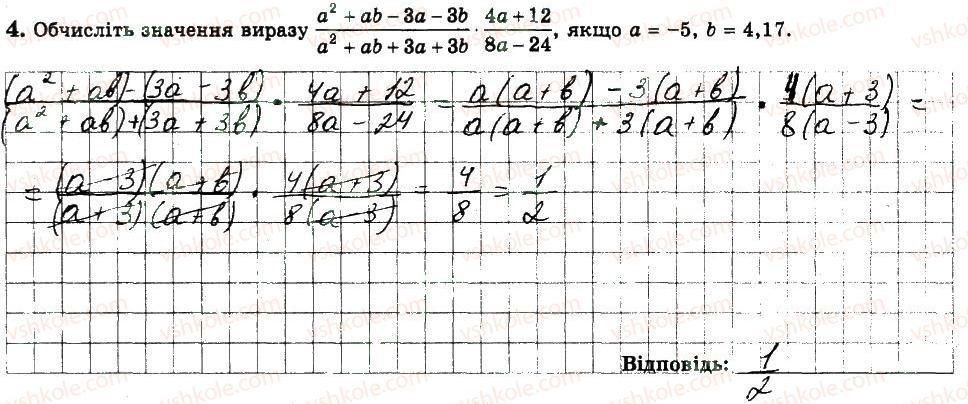 4. Обчисліть значення виразу (a² + ab − 3a − 3b)/(a² + ab + 3a + 3b) · (4a + 12)/(8a − 24), якщо a = −5, b = 4,17.
((a² + ab) − (3a − 3b))/((a² + ab) + (3a + 3b)) · (4a + 12)/(8a − 24) = (a(a + b) − 3(a + b))/(a(a + b) + 3(a + b)) · 4(a + 3)/8(a − 3) =
= (a − 3)(a + b)/(a + 3)(a + b) · 4(a + 3)/8(a − 3) = 4/8 = 1/2
Відповідь: 1/2